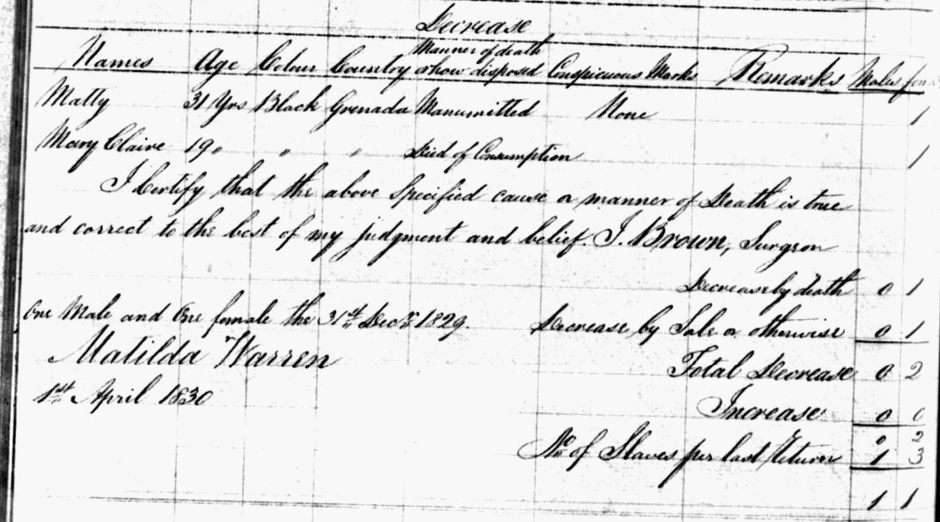 Decrease
Names Age Colour Country Manner of death or how disposed Conspicuous Marks Remarks Males fem
Matty 31 Yrs Black Grenada Manumitted None 1
Mary Claire 19 " " " Died of Consumption 1
I Certify that the above specified cause or manner of Death is true
and correct to the best of my judgment and belief. J. Brown, Surgeon
Decrease by death 0 1
One Male and One female the 31st Decr 1829. Decrease by Sale or otherwise 0 1
Matilda Warren Total Decrease 0 2
1st April 1830 Increase 0 0
0 2
No of Slaves per last Return 1 3
1 1